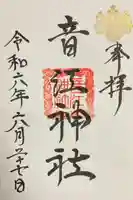 奉拝
音江神社
令和六年六月二十七日